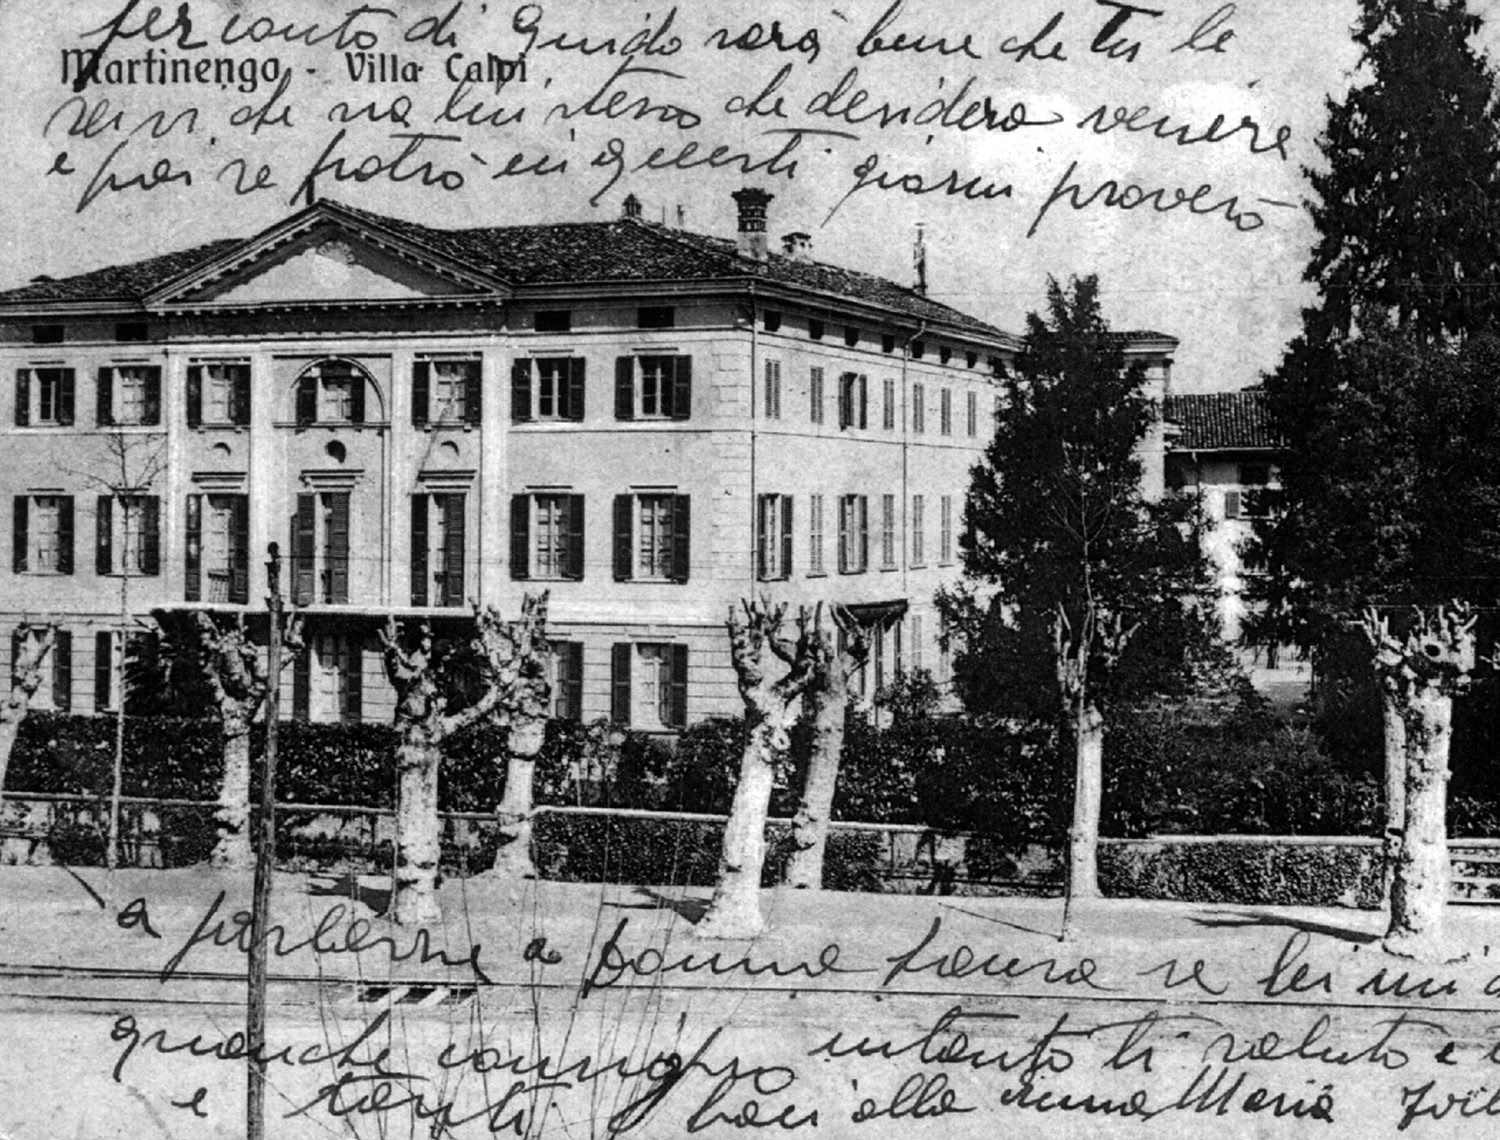 per conto di Guido sarà bene che tu le
Martinengo - Villa Calpi
scivi che sia lui stesso che desidera venire
e poi se potrò in questi giorni proverò
a parlarne a Donna Laura se lei mi
qualche consiglio intanto ti saluto e
e tanti baci alla Maria